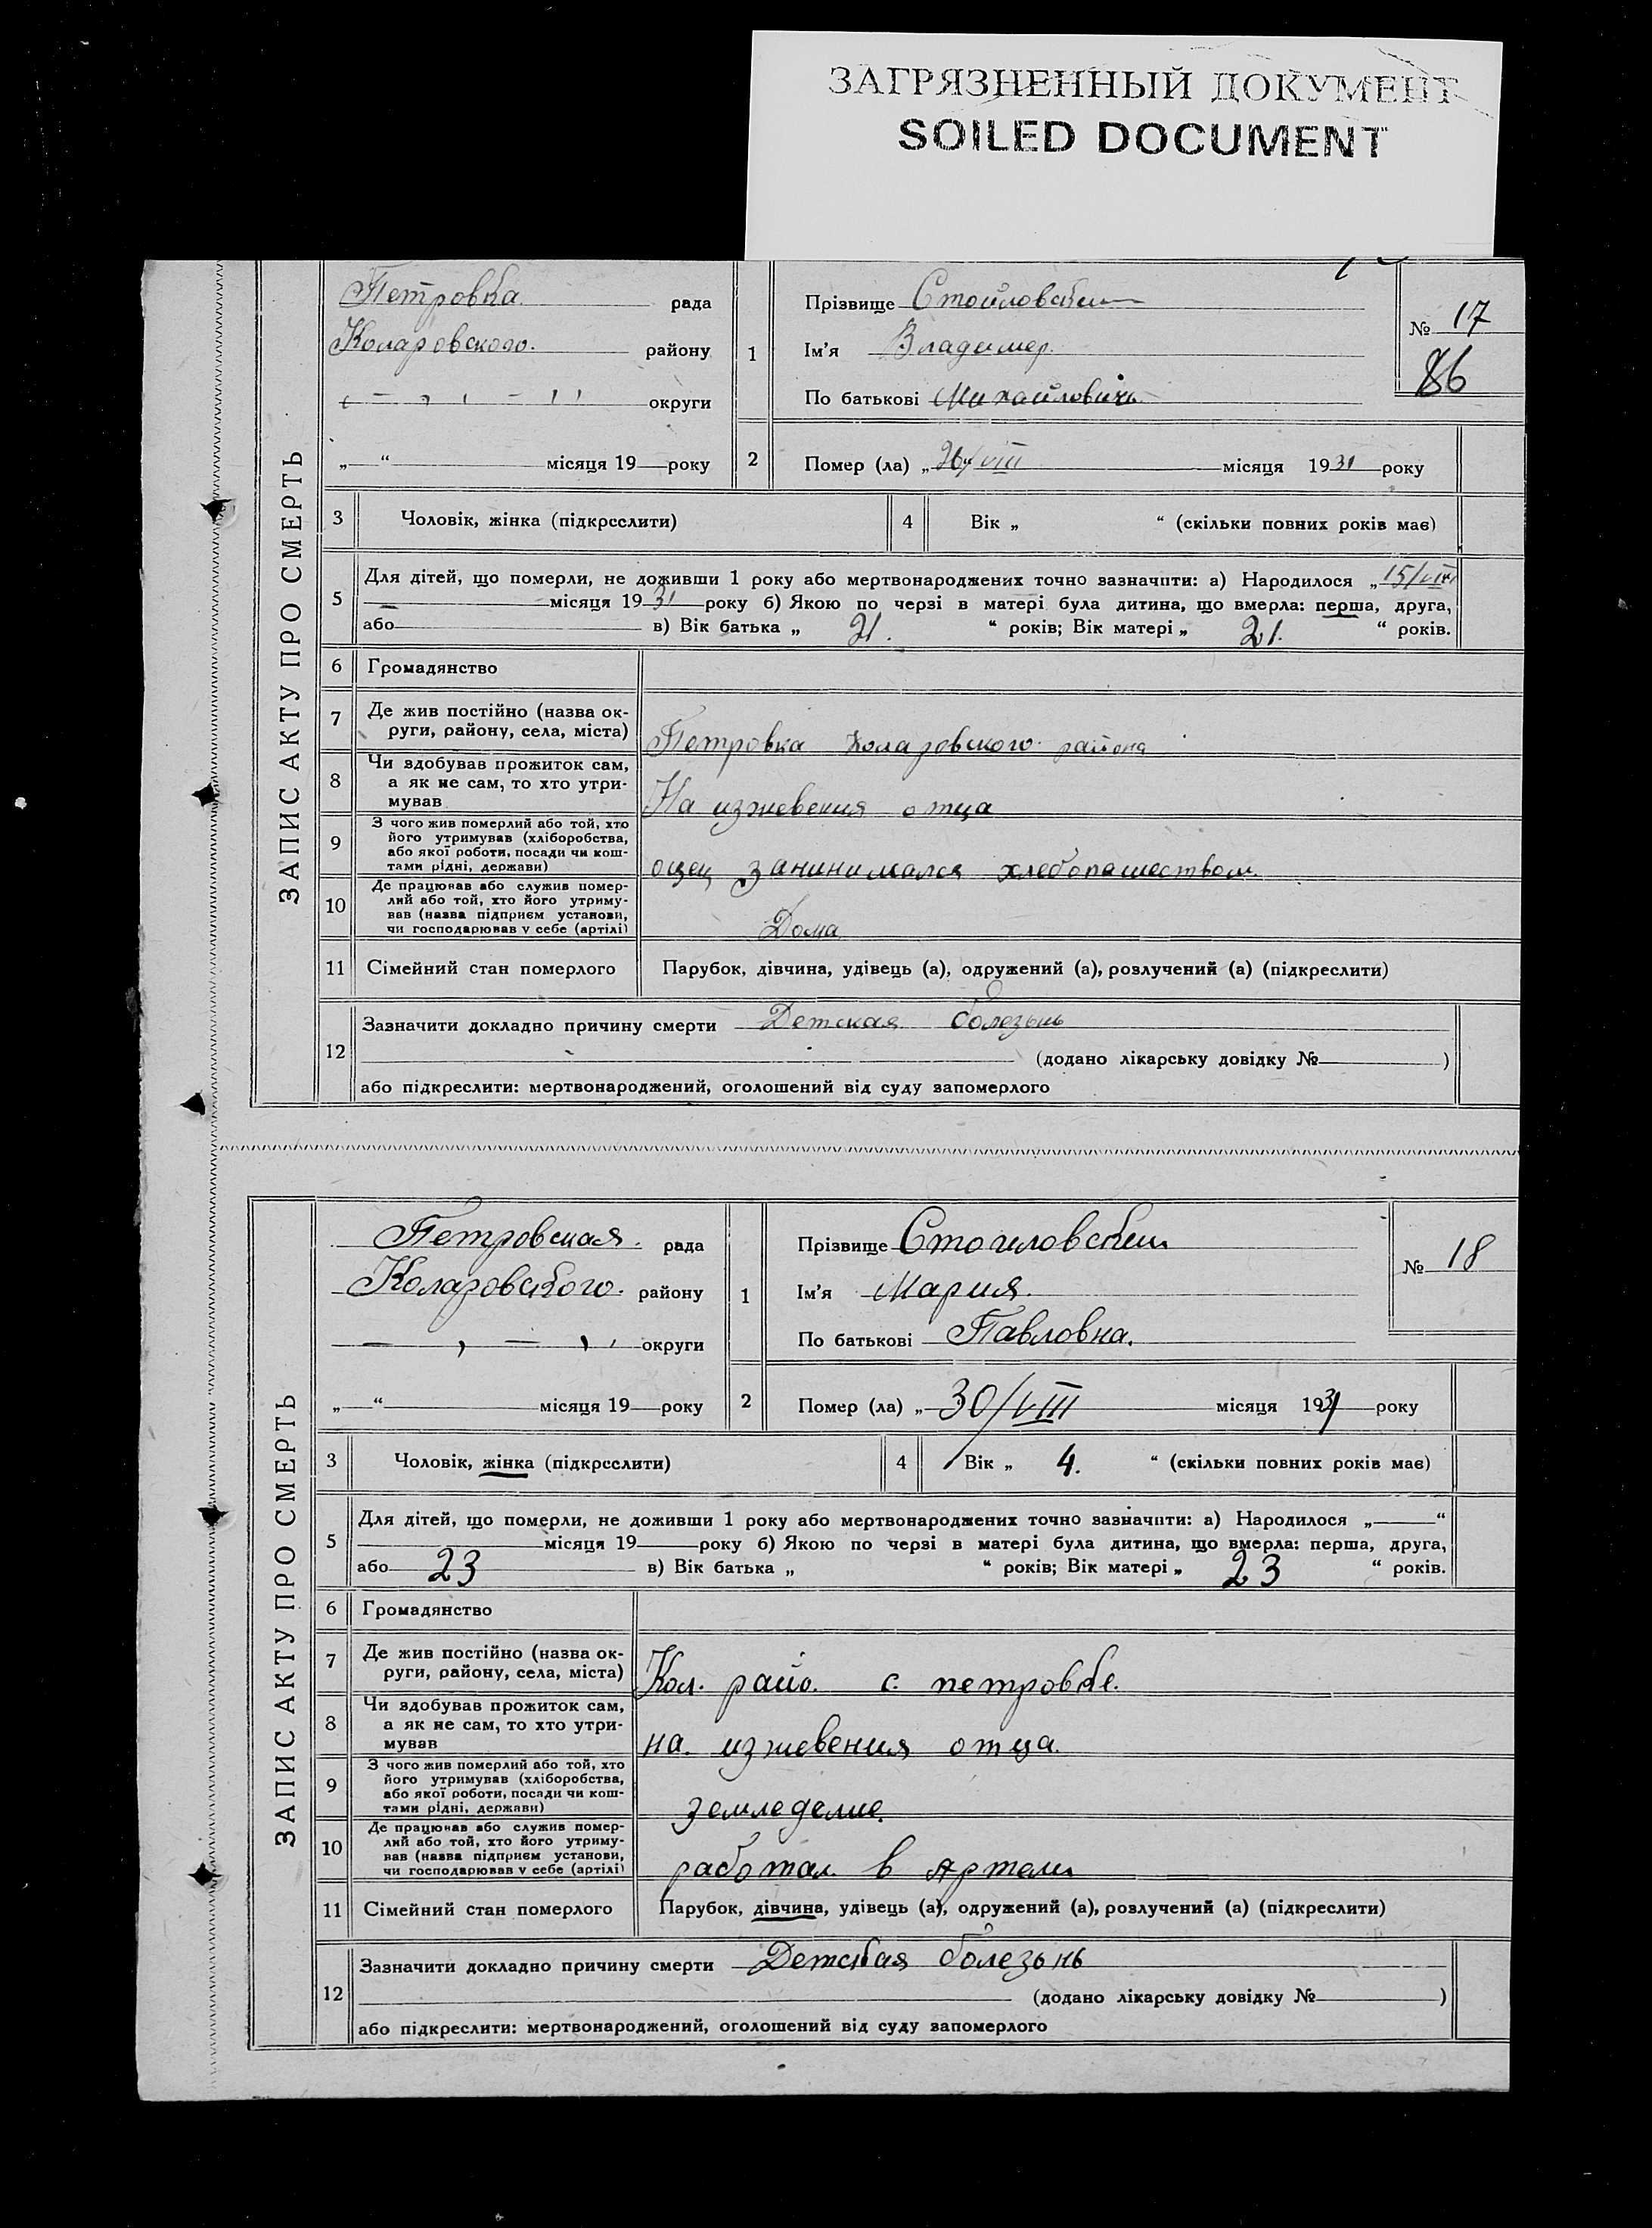 ЗАГРЯЗНЕННЫЙ ДОКУМЕНТ
SOILED DOCUMENT
ЗАПИС АКТУ ПРО СМЕРТЬ
Петровка рада
Коларовского. району
округи
„ “ місяця 19 року
1
Прізвище Стойловский
Ім'я Владимер.
По батькові Михайловичь
№ 17
86
2 Помер (ла) „26/VIII місяця 1931 року
3 Чоловік, жінка (підкреслити) 4 Вік „ “ (скільки повних років має)
5 Для дітей, що померли, не доживши 1 року або мертвонароджених точно зазначити: а) Народилося „15/VIII
місяця 1931 року б) Якою по черзі в матері була дитина, що вмерла: перша, друга,
або в) Вік батька „ 21. “ років; Вік матері „ 21. “ років.
6 Громадянство
7 Де жив постійно (назва ок-
руги, району, села, міста) Петровка Коларовского района
8 Чи здобував прожиток сам,
а як не сам, то хто утри-
мував На изжевения отца
9 З чого жив померлий або той, хто
його утримував (хліборобства,
або якої роботи, посади чи кош-
тами рідні, держави) оцец занинимался хлебопашеством
10 Де працював або служив помер-
лий або той, хто його утриму-
вав (назва підприєм установи,
чи господарював у себе (артілі) Дома
11 Сімейний стан померлого Парубок, дівчина, удівець (а), одружений (а), розлучений (а) (підкреслити)
12 Зазначити докладно причину смерти Детская болезьнь
(додано лікарську довідку № )
або підкреслити: мертвонароджений, оголошений від суду запомерлого
ЗАПИС АКТУ ПРО СМЕРТЬ
Петровская. рада
Коларовского. району
округи
„ “ місяця 19 року
1
Прізвище Стоиловский
Ім'я Мария.
По батькові Павловна.
№ 18
2 Помер (ла) „30/VIII місяця 1931 року
3 Чоловік, жінка (підкреслити) 4 Вік „ 4. “ (скільки повних років має)
5 Для дітей, що померли, не доживши 1 року або мертвонароджених точно зазначити: а) Народилося „ “
місяця 19 року б) Якою по черзі в матері була дитина, що вмерла: перша, друга,
або 23 в) Вік батька „ “ років; Вік матері „ 23 “ років.
6 Громадянство
7 Де жив постійно (назва ок-
руги, району, села, міста) Кол. райо. с. петровке.
8 Чи здобував прожиток сам,
а як не сам, то хто утри-
мував на. изжевения отца.
9 З чого жив померлий або той, хто
його утримував (хліборобства,
або якої роботи, посади чи кош-
тами рідні, держави) земледелие.
10 Де працював або служив помер-
лий або той, хто його утриму-
вав (назва підприєм установи,
чи господарював у себе (артілі) работал в Артели
11 Сімейний стан померлого Парубок, дівчина, удівець (а), одружений (а), розлучений (а) (підкреслити)
12 Зазначити докладно причину смерти Детская болезьнь
(додано лікарську довідку № )
або підкреслити: мертвонароджений, оголошений від суду запомерлого